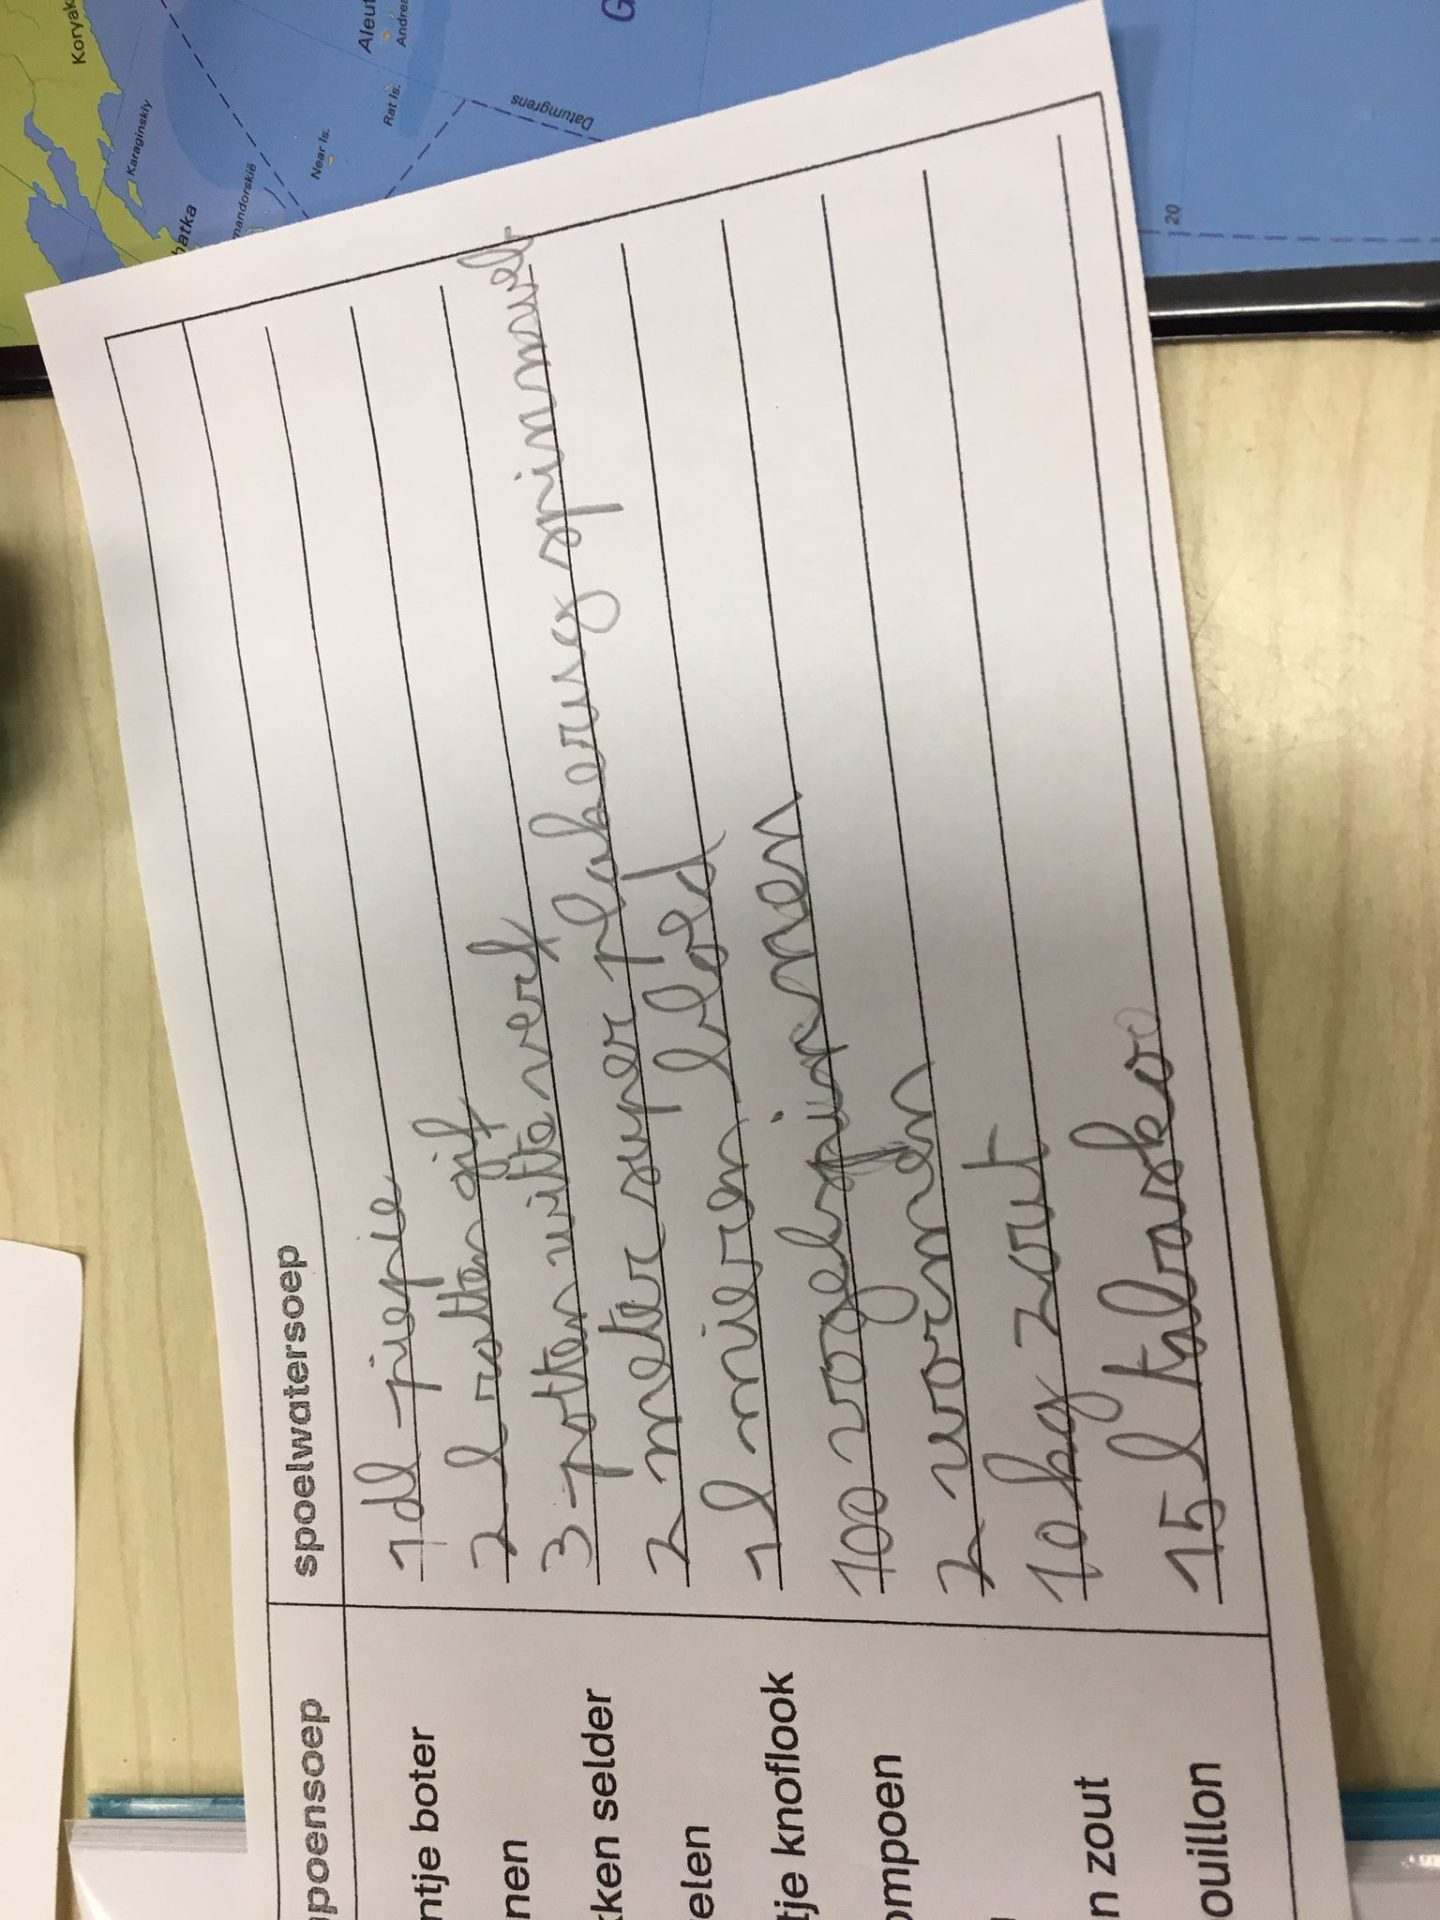 Koryak
Aleut
Andrea
G
Karaginskiy
Rat Is.
Near Is.
Datumgrens
mandorskië
hatka
20
poensoep
spoelwatersoep
ntje boter
nen
kken selder
elen
tje knoflook
ompoen
n zout
ouillon
1dl piepie
2 l rattengif
3 potten witte verf
2 meter super plakerug spinnnweb
1 l mieren bloed
100 vogelspinnen
2 wormen
10 kg zout
15 l tabaskoo